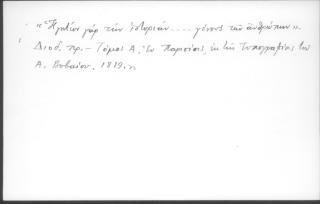 « Ἡγητέον γὰρ τὴν ἱστορίαν .... γένους τῶν ἀνθρώπων ».
Διοδ. πρ. – Τόμος Α. Ἐν Παρισίοις, ἐκ τῆς Τυπογραφίας τοῦ
Α. Βοβαίου. 1819. »